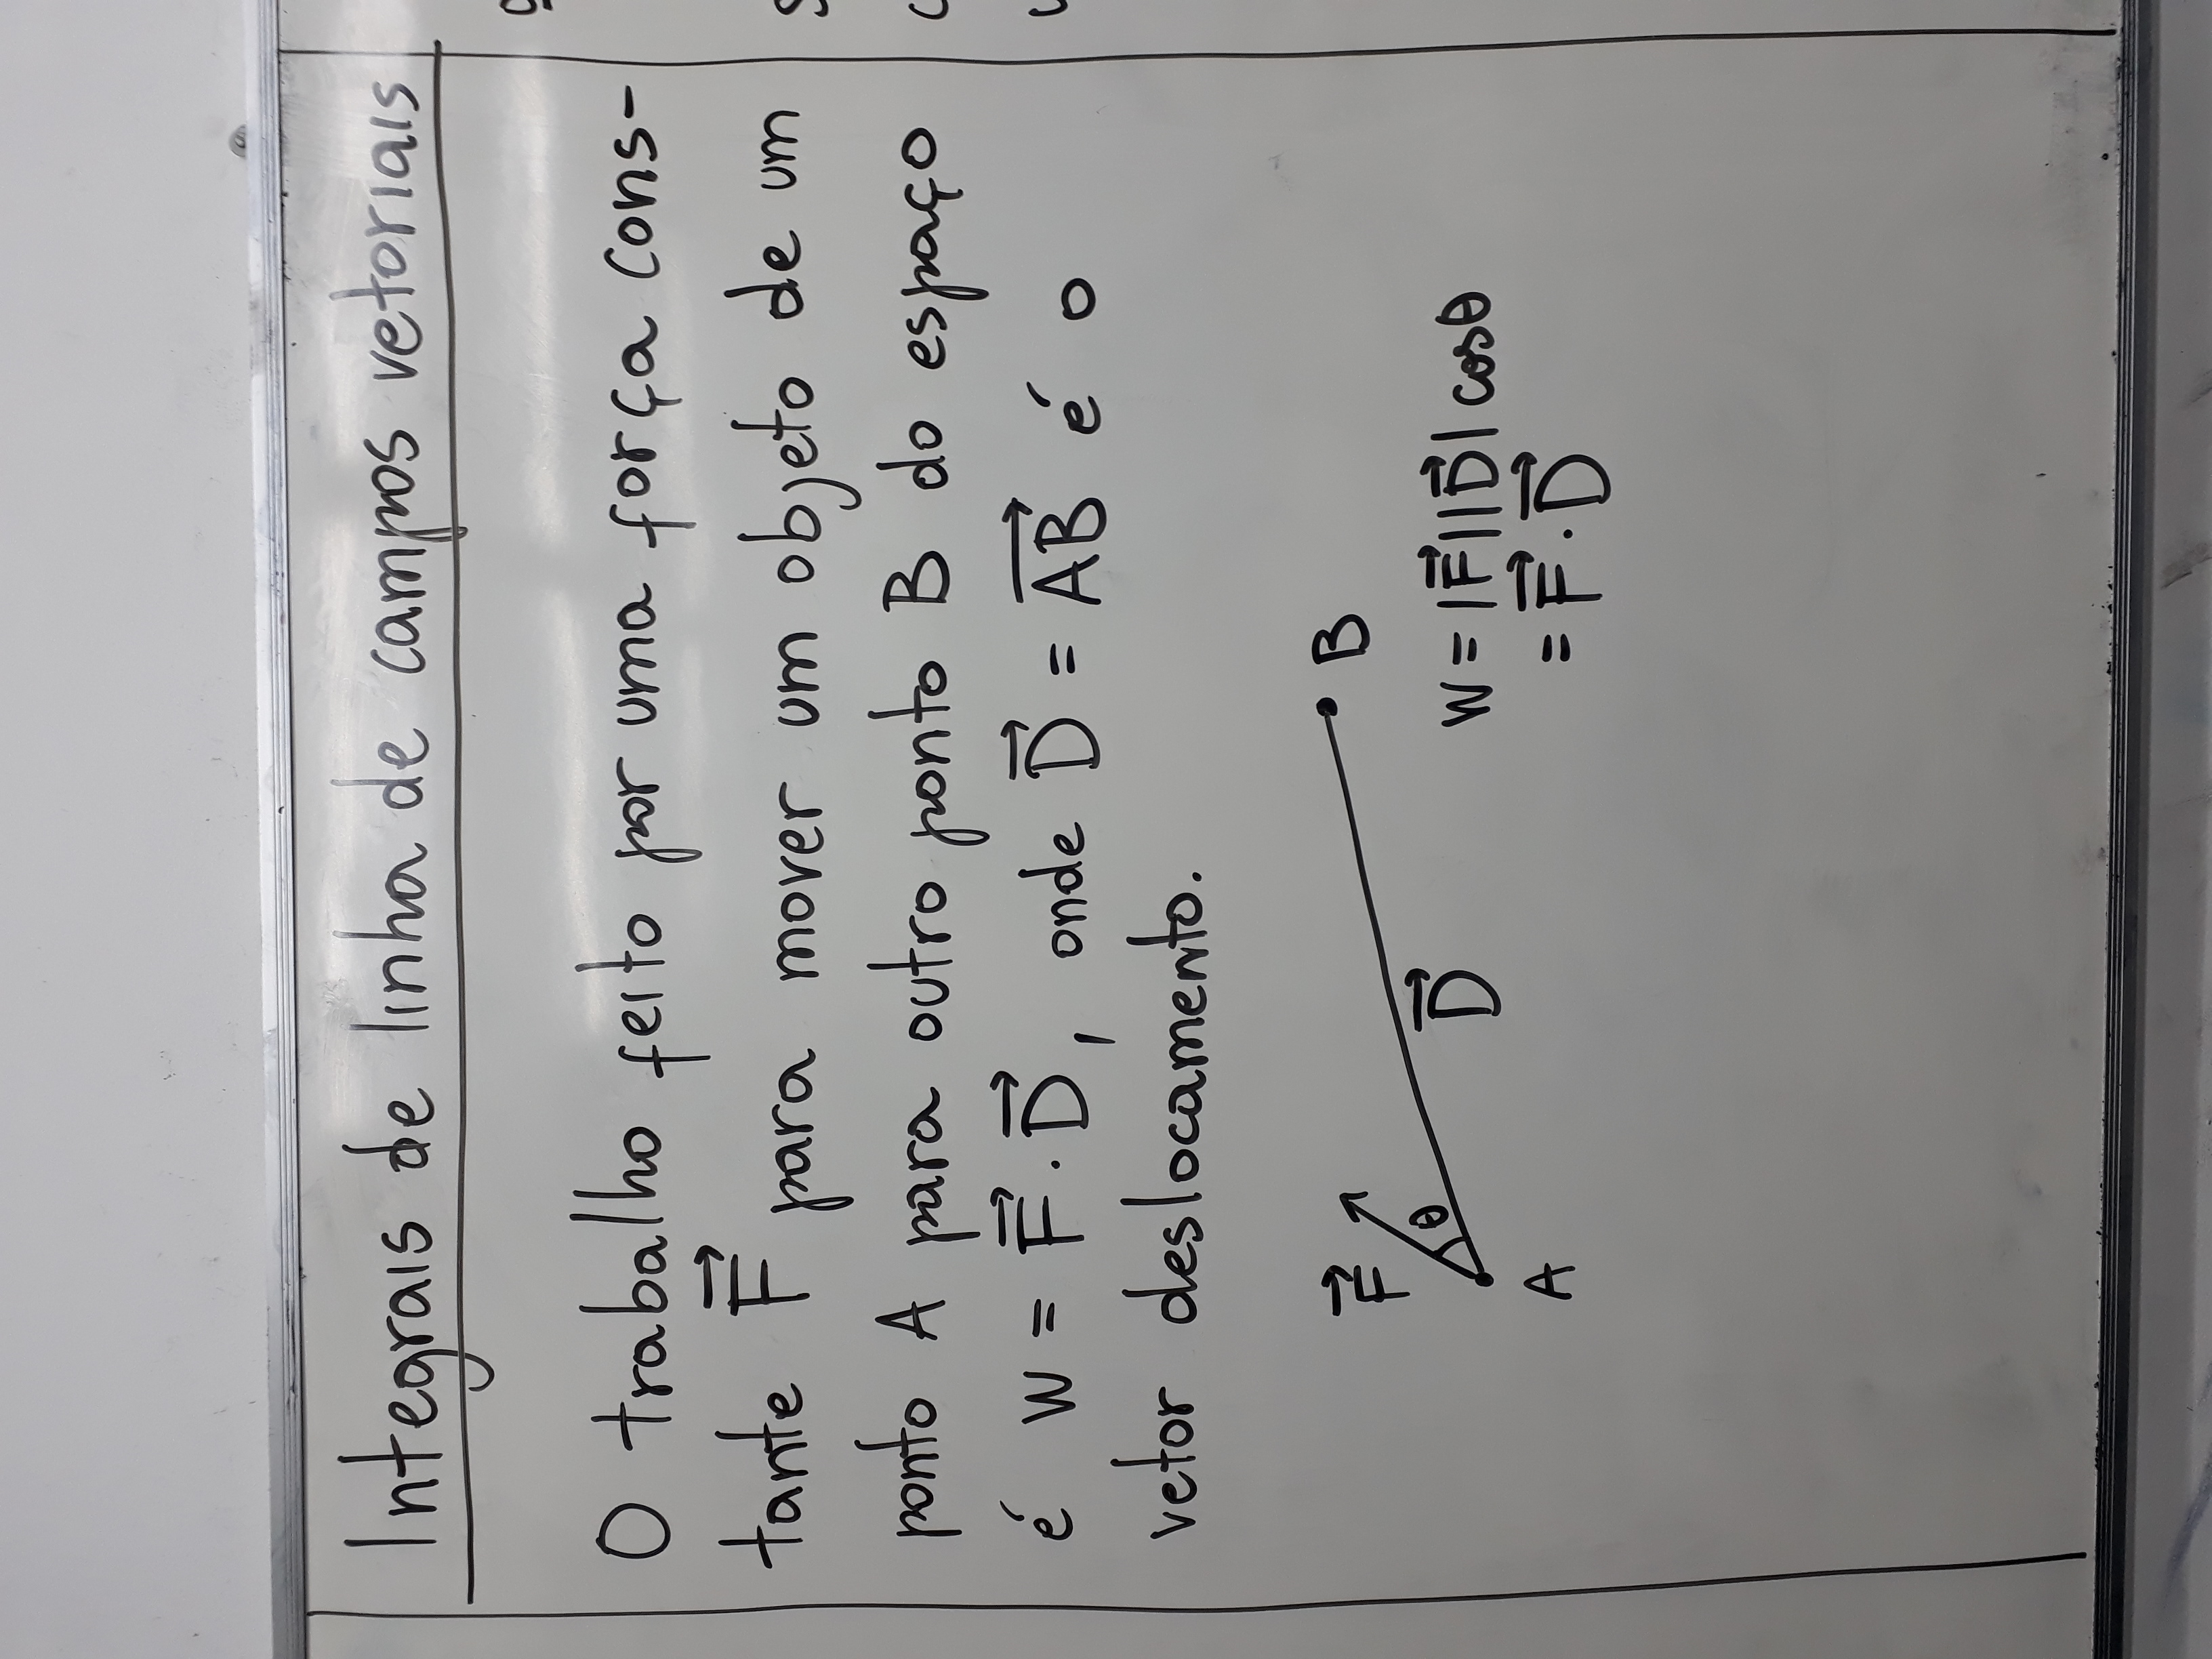 Integrais de linha de campos vetoriais
O trabalho feito por uma força cons-
tante F⃗ para mover um objeto de um
ponto A para outro ponto B do espaço
é W = F⃗ · D⃗, onde D⃗ = A⃗B⃗ é o
vetor deslocamento.
F⃗
θ
B
D⃗
A
W = |F⃗||D⃗| cosθ
= F⃗ · D⃗